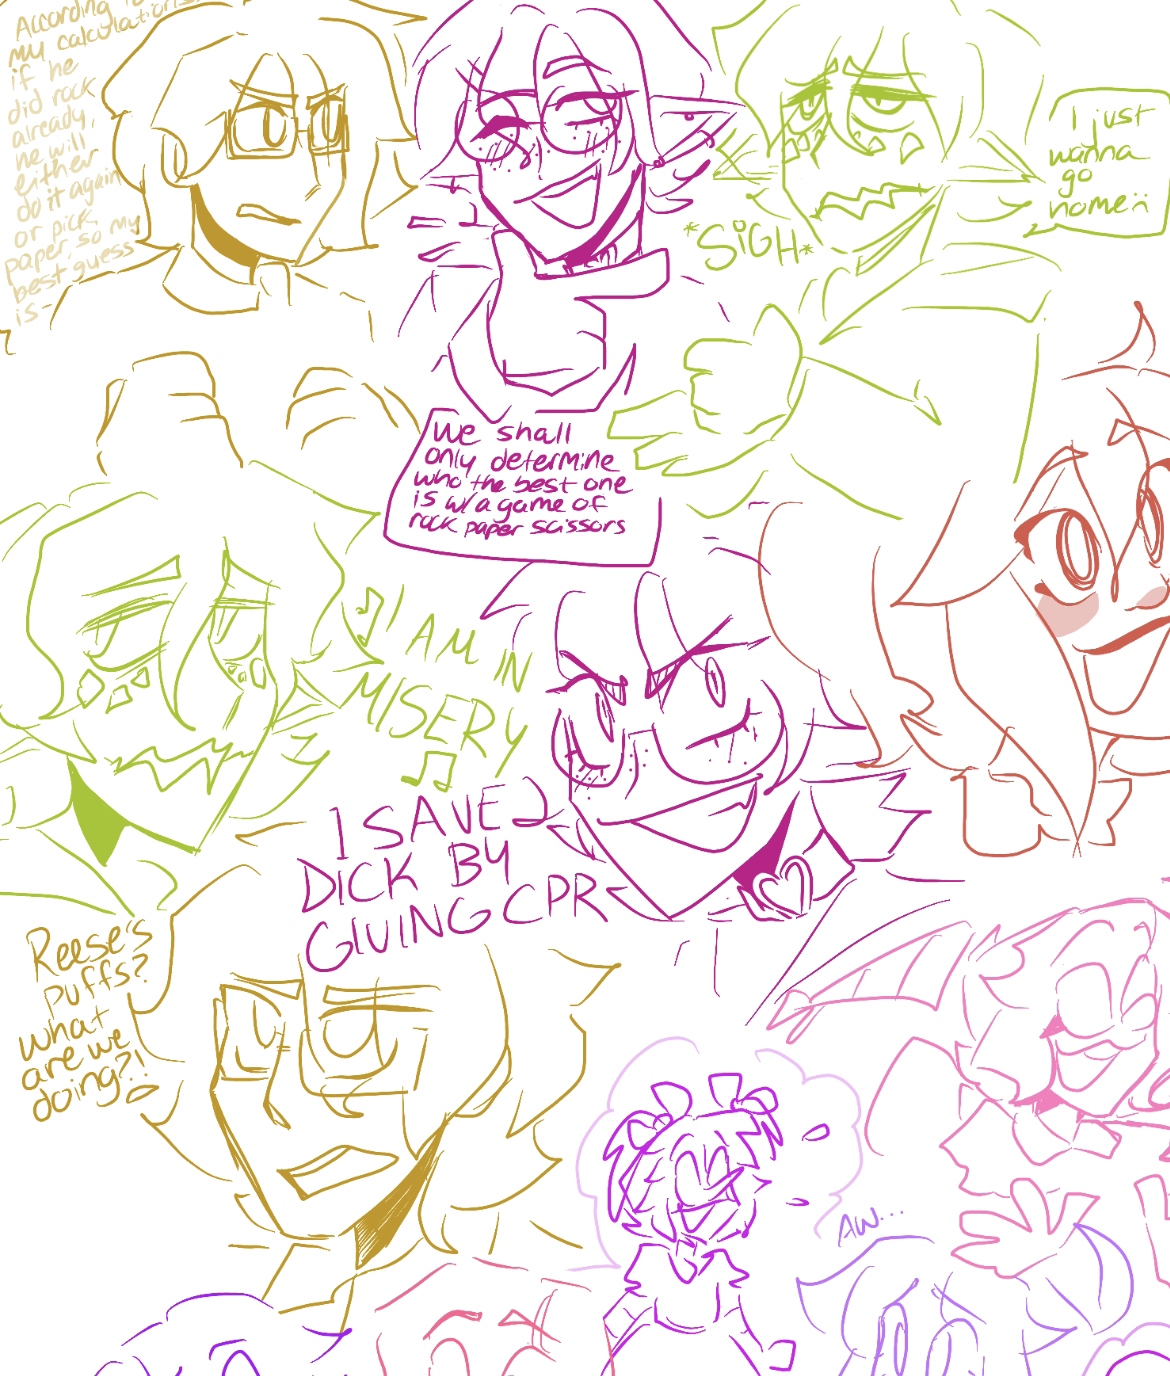 According to
my calculations,
if he
did rock
already,
he will
either
do it again
or pick
paper, so my
best guess
is-
I just
wanna
go
home:(
*SIGH*
We shall
only determine
who the best one
is w/ a game of
rock paper scissors
I AM IN
MISERY
I SAVED
DICK BY
GIVING CPR
Reese's
puffs?
what
are we
doing?!
AW...